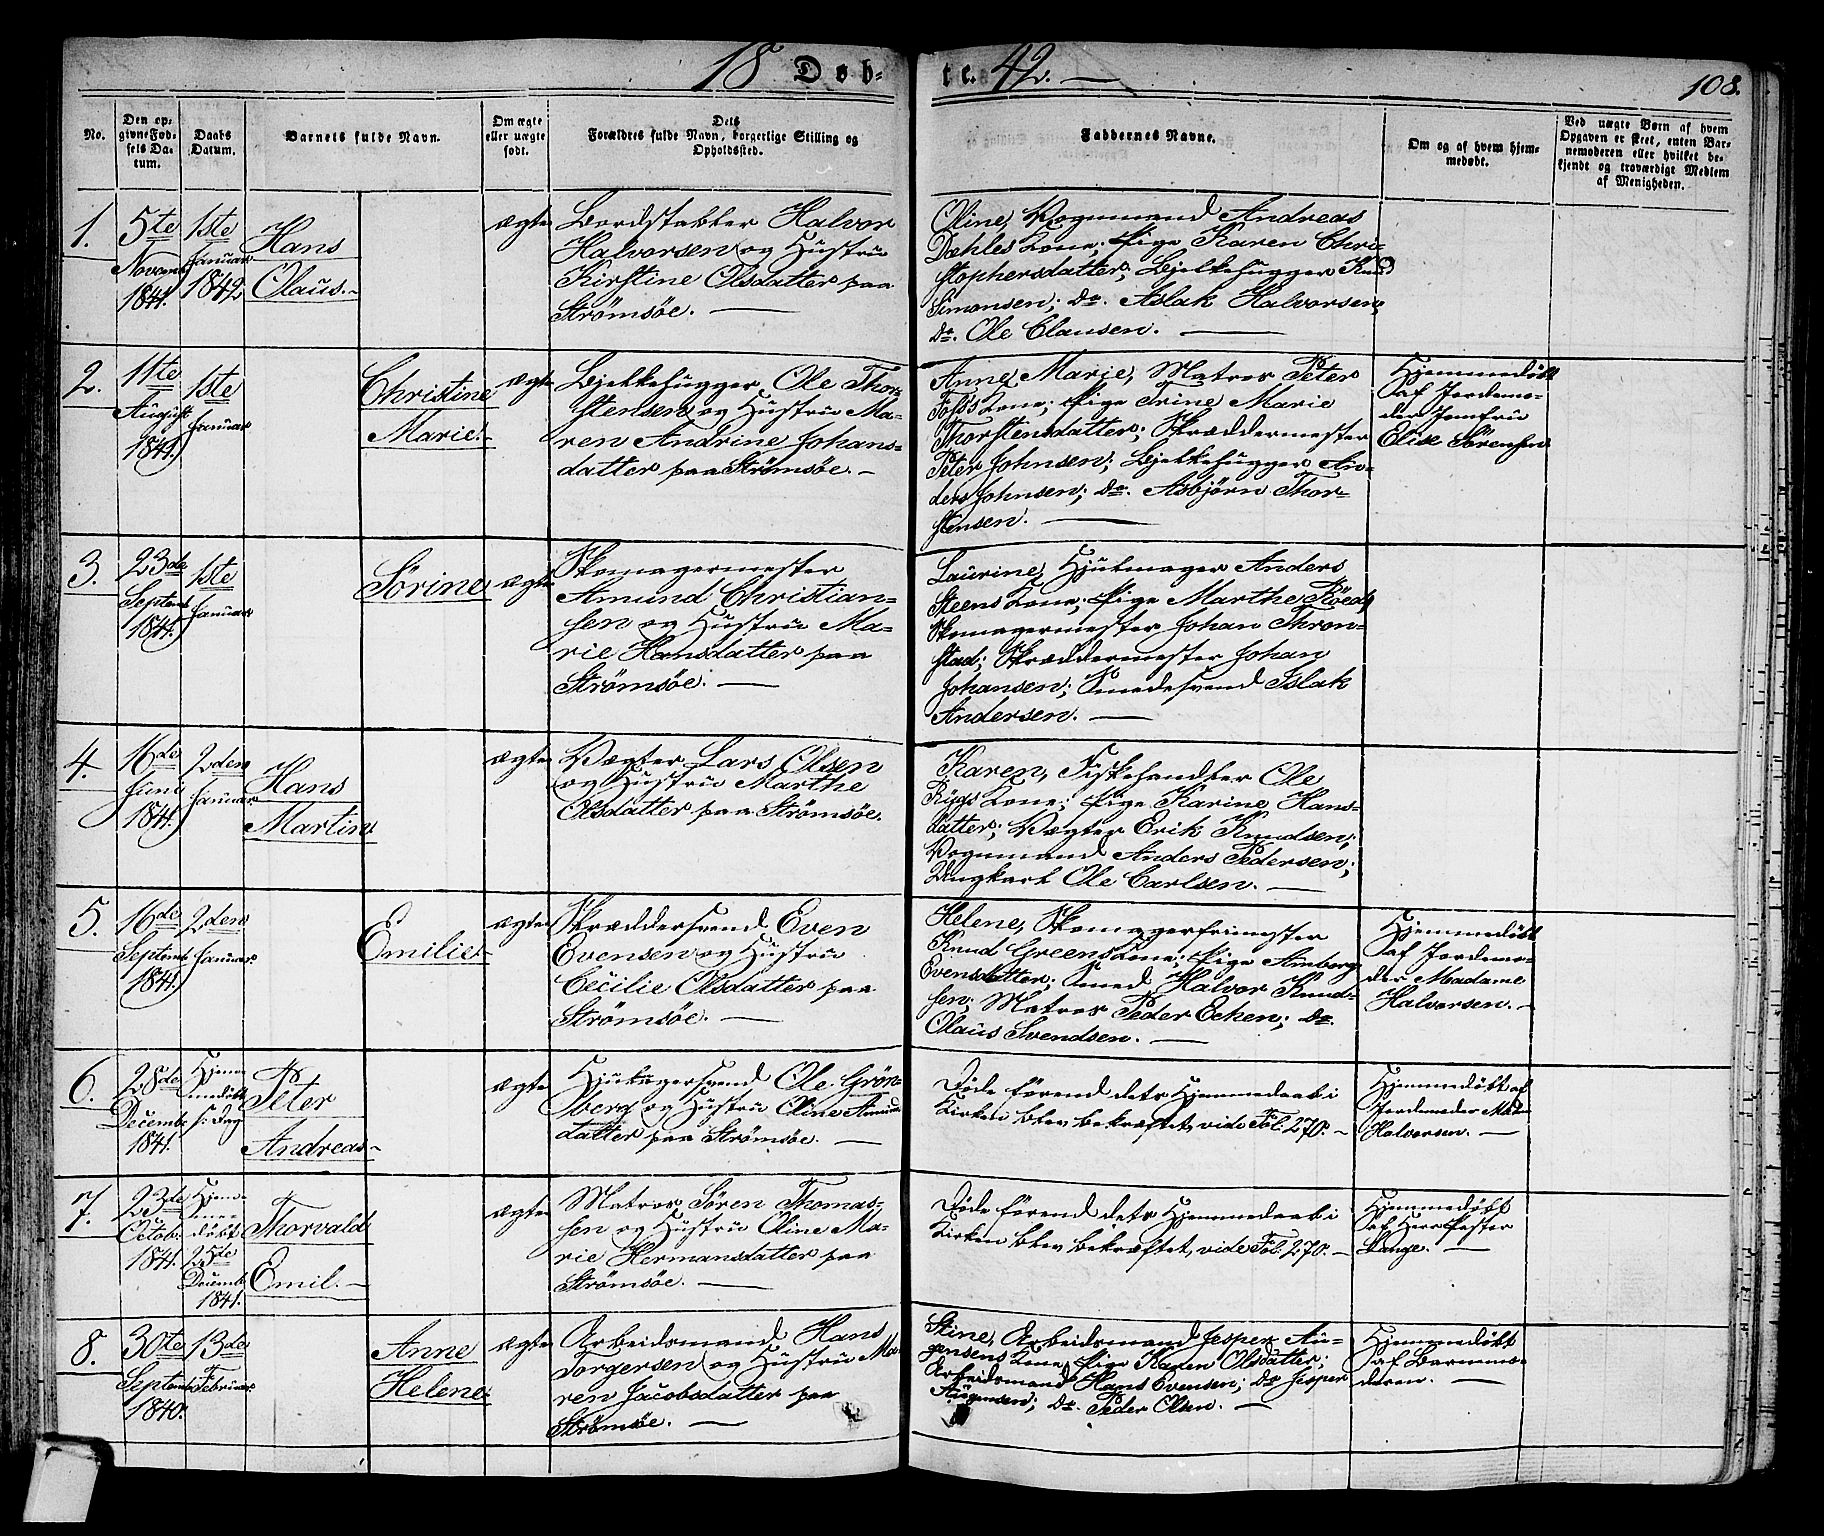 18 Døb-
te. 42. —
108.
No.
Den op-
givne Fød-
sels Da-
tum.
Daabs
Datum.
Barnets fulde Navn.
Om ægte
eller uægte
født.
Dets
Forældres fulde Navn, borgerlige Stilling og
Opholdssted.
Faddernes Navne.
Om og af hvem hjem-
medøbt.
Ved uægte Børn af hvem
Opgaven er skeet, enten Bar-
nemoderen eller hvilket be-
kjendt og troværdigt Medlem
af Menigheden.
1.
5te
Novemb
1841.
1ste
Januar
1842
Hans
Olaus. -
ægte
Bordstabler Halvor
Halvorsen og Hustru
Kirstine Olsdatter paa
Strömsöe. —
Oline, Vognmand Andreas
Dahles Kone; Pige Karen Chri-
stophersdatter; Bjelkehugger Knud
Simonsen; do. Aslak Halvorsen;
do. Ole Clausen. —
2.
11te
August
1841.
1ste
Januar
Christine
Marie. -
ægte
Bjelkehugger Ole Thor-
stensen og Hustru Ma-
ren Andrine Johans-
datter paa Strömsöe. -
Anne Marie, Matros Peter
Foss's Kone; Pige Trine Marie
Thorstensdatter; Skræddermester
Peter Johnsen; Bjelkehugger An-
ders Johnsen; do. Asbjörn Thor-
stensen. —
Hjemmedøbt
af Jordemo-
der Jomfru
Elise Sörensen
3.
23de
Septemb
1841.
1ste
Januar
Sörine
ægte
Skomagermester
Amund Christian-
sen og Hustru Ma-
rie Hansdatter paa
Strömsöe. —
Laurine, Hjulmager Anders
Steens Kone; Pige Marthe Röed;
Skomagermester Johan Thron-
stad; Skræddermester Johan
Johansen; Smedesvend Aslak
Andersen. —
4.
16de
Juni
1841.
2den
Januar
Hans
Martin
ægte
Vægter Lars Olsen
og Hustru Marthe
Olsdatter paa Strömsöe.
Karen, Fiskehandler Ole
Rygs Kone; Pige Karine Hans-
datter; Vægter Erik Knudsen;
Vognmand Anders Pedersen;
Ungkarl Ole Carlsen. —
5.
16de
Septemb
1841.
2den
Januar
Emilie. -
ægte
Skræddersvend Even
Evensen og Hustru
Cecilie Olsdatter paa
Strömsöe. —
Helene, Skomagerfrimester
Knud Greens Kone; Pige Amborg
Evensdatter; Smed Halvor Knud-
sen; Matros Peder Ecken; do.
Olaus Svendsen. —
Hjemmedøbt
af Jordemo-
der Madame
Halvorsen. -
6.
28de
Decembr
1841.
Hjem-
medøbt
s: Dag
Peter
Andreas -
ægte
Ole Grön-
berg og Hustru Oline Amunds
datter paa Strömsöe. —
Døde førend dets Hjemmedaab i
Kirken blev bekræftet, vide Fol. 270. -
Hjemmedøbt af
Jordemoder Mad.
Halvorsen. -
7.
23de
Octob.
1841.
Hjem-
me-
døbt
25de
Decemb.
1841.
Thorvald
Emil. -
ægte
Matros Sören Thomas-
sen og Hustru Oline Ma-
rie Hermansdatter paa
Strömsöe. —
Døde førend dets Hjemmedaab i
Kirken blev bekræftet, vide Fol. 270. -
Hjemmedøbt
af Herr Pastor
Lange. —
8.
30te
Septemb
1840.
13de
Februar
Anne
Helene
ægte
Arbeidsmand Hans
Torgersen og Hustru Ma-
ren Jacobsdatter paa
Strömsöe. —
Stine, Arbeidsmand Jesper Au-
gensens Kone; Pige Karen Olsdatter;
Arbeidsmand Hans Evensen; do Jesper
Augensen; do. Peder Olsen. —
Hjemmedøbt
af Barnemo-
deren. —